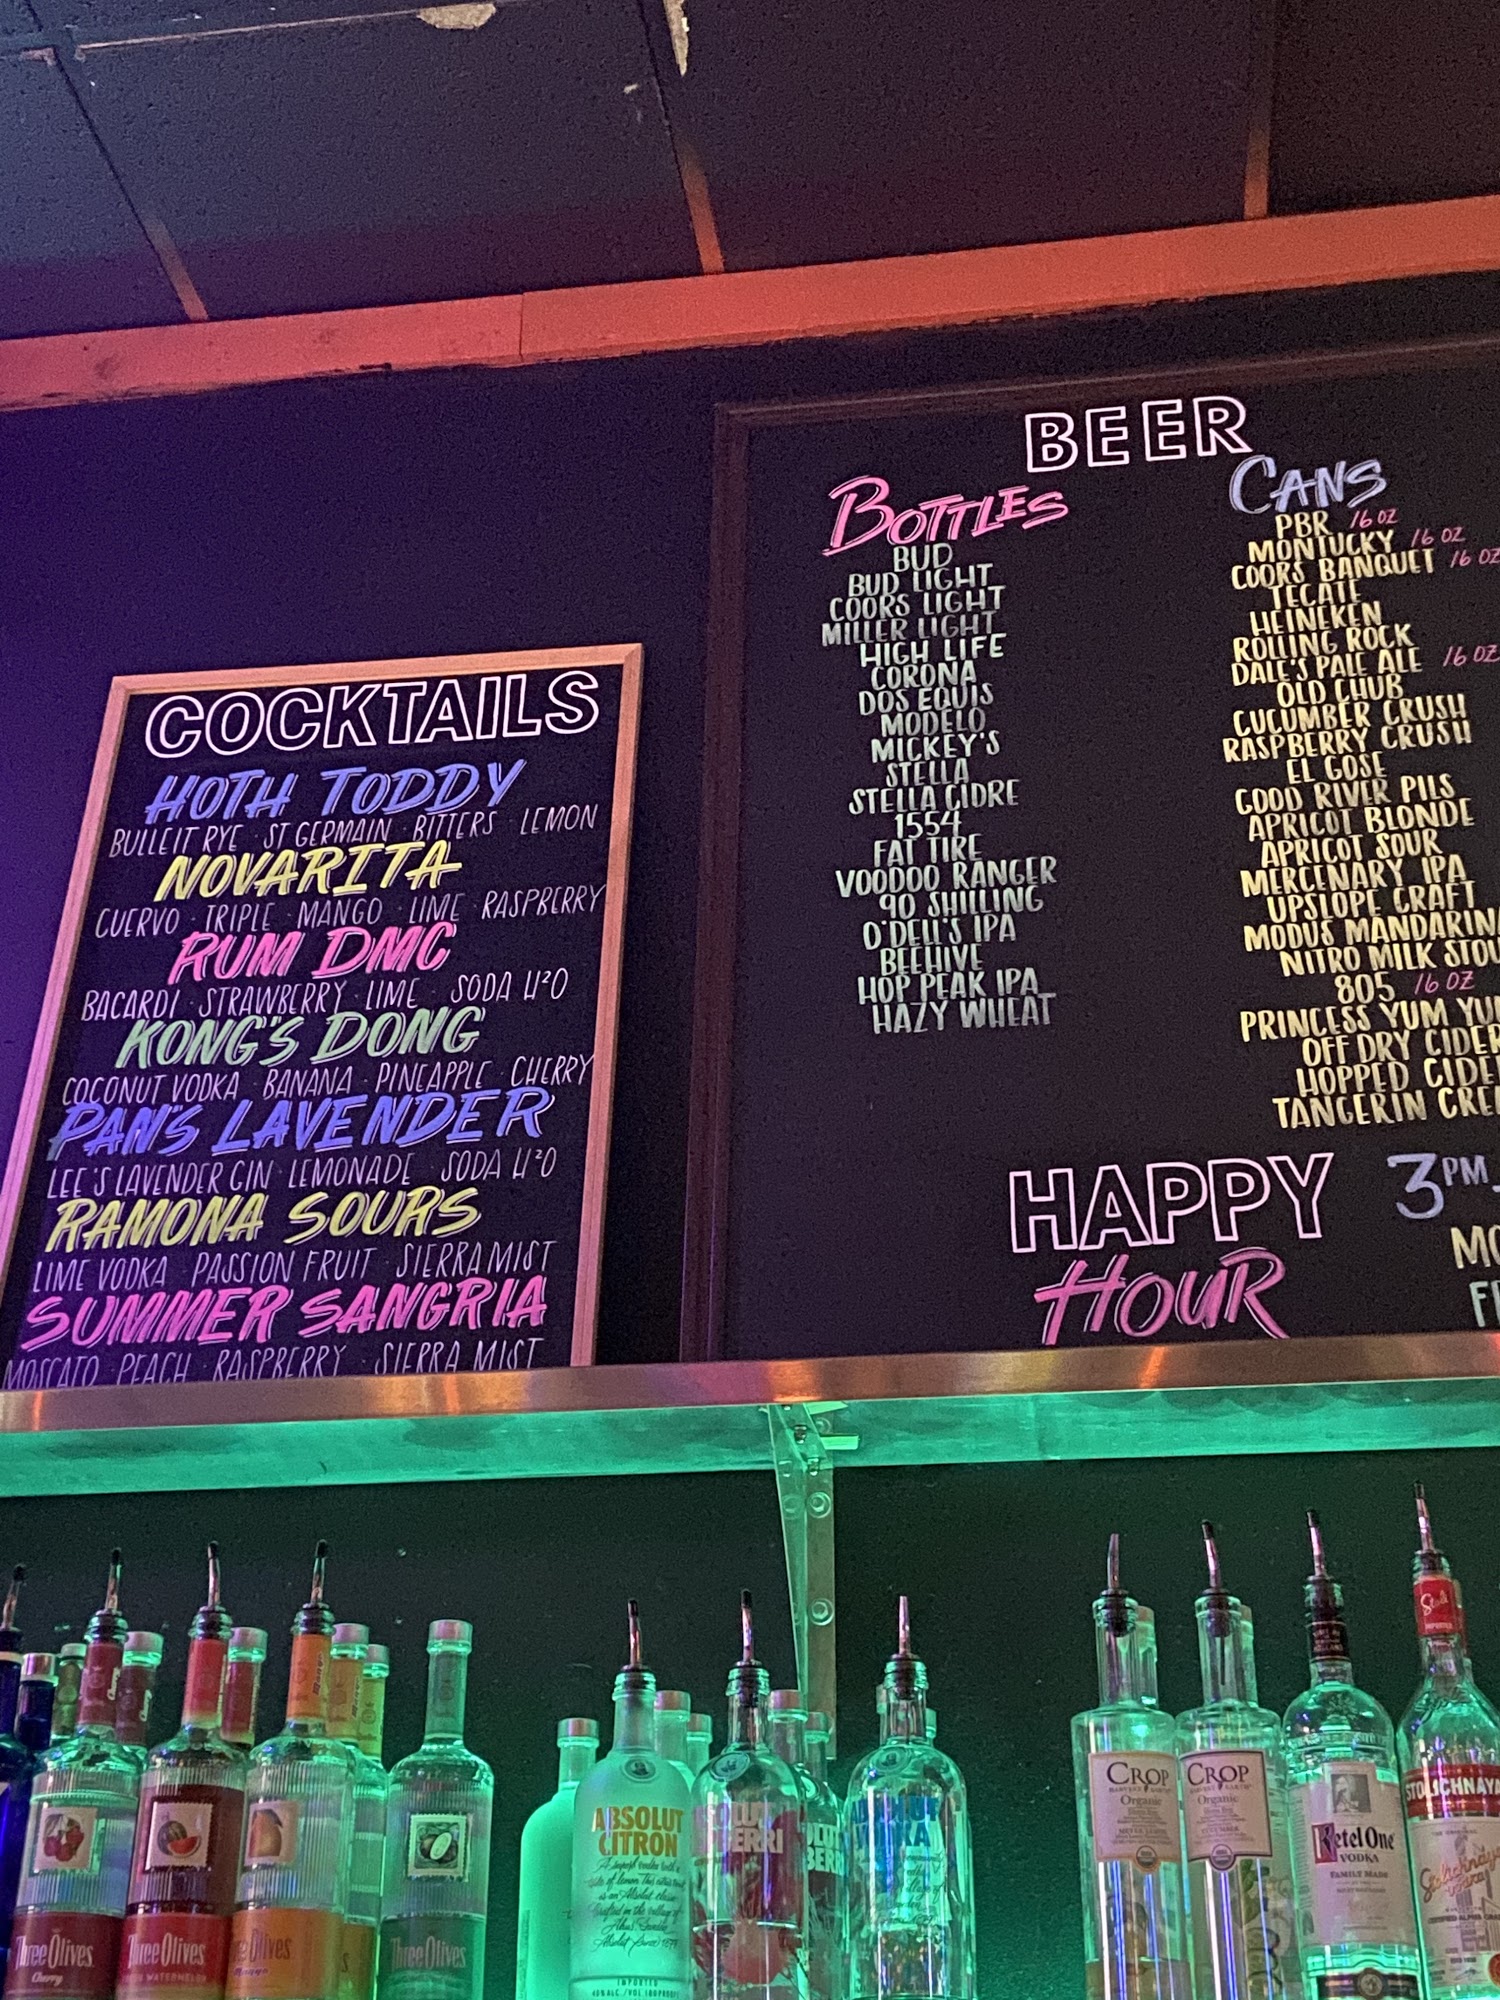 COCKTAILS
HOTH TODDY
BULLEIT RYE · ST GERMAIN · BITTERS · LEMON
NOVARITA
CUERVO · TRIPLE · MANGO · LIME · RASPBERRY
RUM DMC
BACARDI · STRAWBERRY · LIME · SODA H²O
KONG'S DONG
COCONUT VODKA · BANANA · PINEAPPLE · CHERRY
PAN'S LAVENDER
LEE'S LAVENDER GIN · LEMONADE · SODA H²O
RAMONA SOURS
LIME VODKA · PASSION FRUIT · SIERRA MIST
SUMMER SANGRIA
MOSCATO · PEACH · RASPBERRY · SIERRA MIST
BEER
BOTTLES
BUD
BUD LIGHT
COORS LIGHT
MILLER LIGHT
HIGH LIFE
CORONA
DOS EQUIS
MODELO
MICKEY'S
STELLA
STELLA CIDRE
1554
FAT TIRE
VOODOO RANGER
90 SHILLING
O'DELL'S IPA
BEEHIVE
HOP PEAK IPA
HAZY WHEAT
CANS
PBR 16 OZ
MONTUCKY 16 OZ
COORS BANQUET 16 OZ
TECATE
HEINEKEN
ROLLING ROCK
DALE'S PALE ALE 16 OZ
OLD CHUB
CUCUMBER CRUSH
RASPBERRY CRUSH
EL GOSE
GOOD RIVER PILS
APRICOT BLONDE
APRICOT SOUR
MERCENARY IPA
UPSLOPE CRAFT
MODUS MANDARINA
NITRO MILK STOU
805 16 OZ
PRINCESS YUM YU
OFF DRY CIDER
HOPPED CIDE
TANGERIN CRE
HAPPY
HOUR
3PM
MO
F
Three Olives
Cherry
Three Olives
WATERMELON
Three Olives
Mango
Three Olives
ABSOLUT
CITRON
IMPORTED
CROP
Organic
CROP
Organic
Ketel One
VODKA
FAMILY MADE
Stoli
STOLICHNAYA